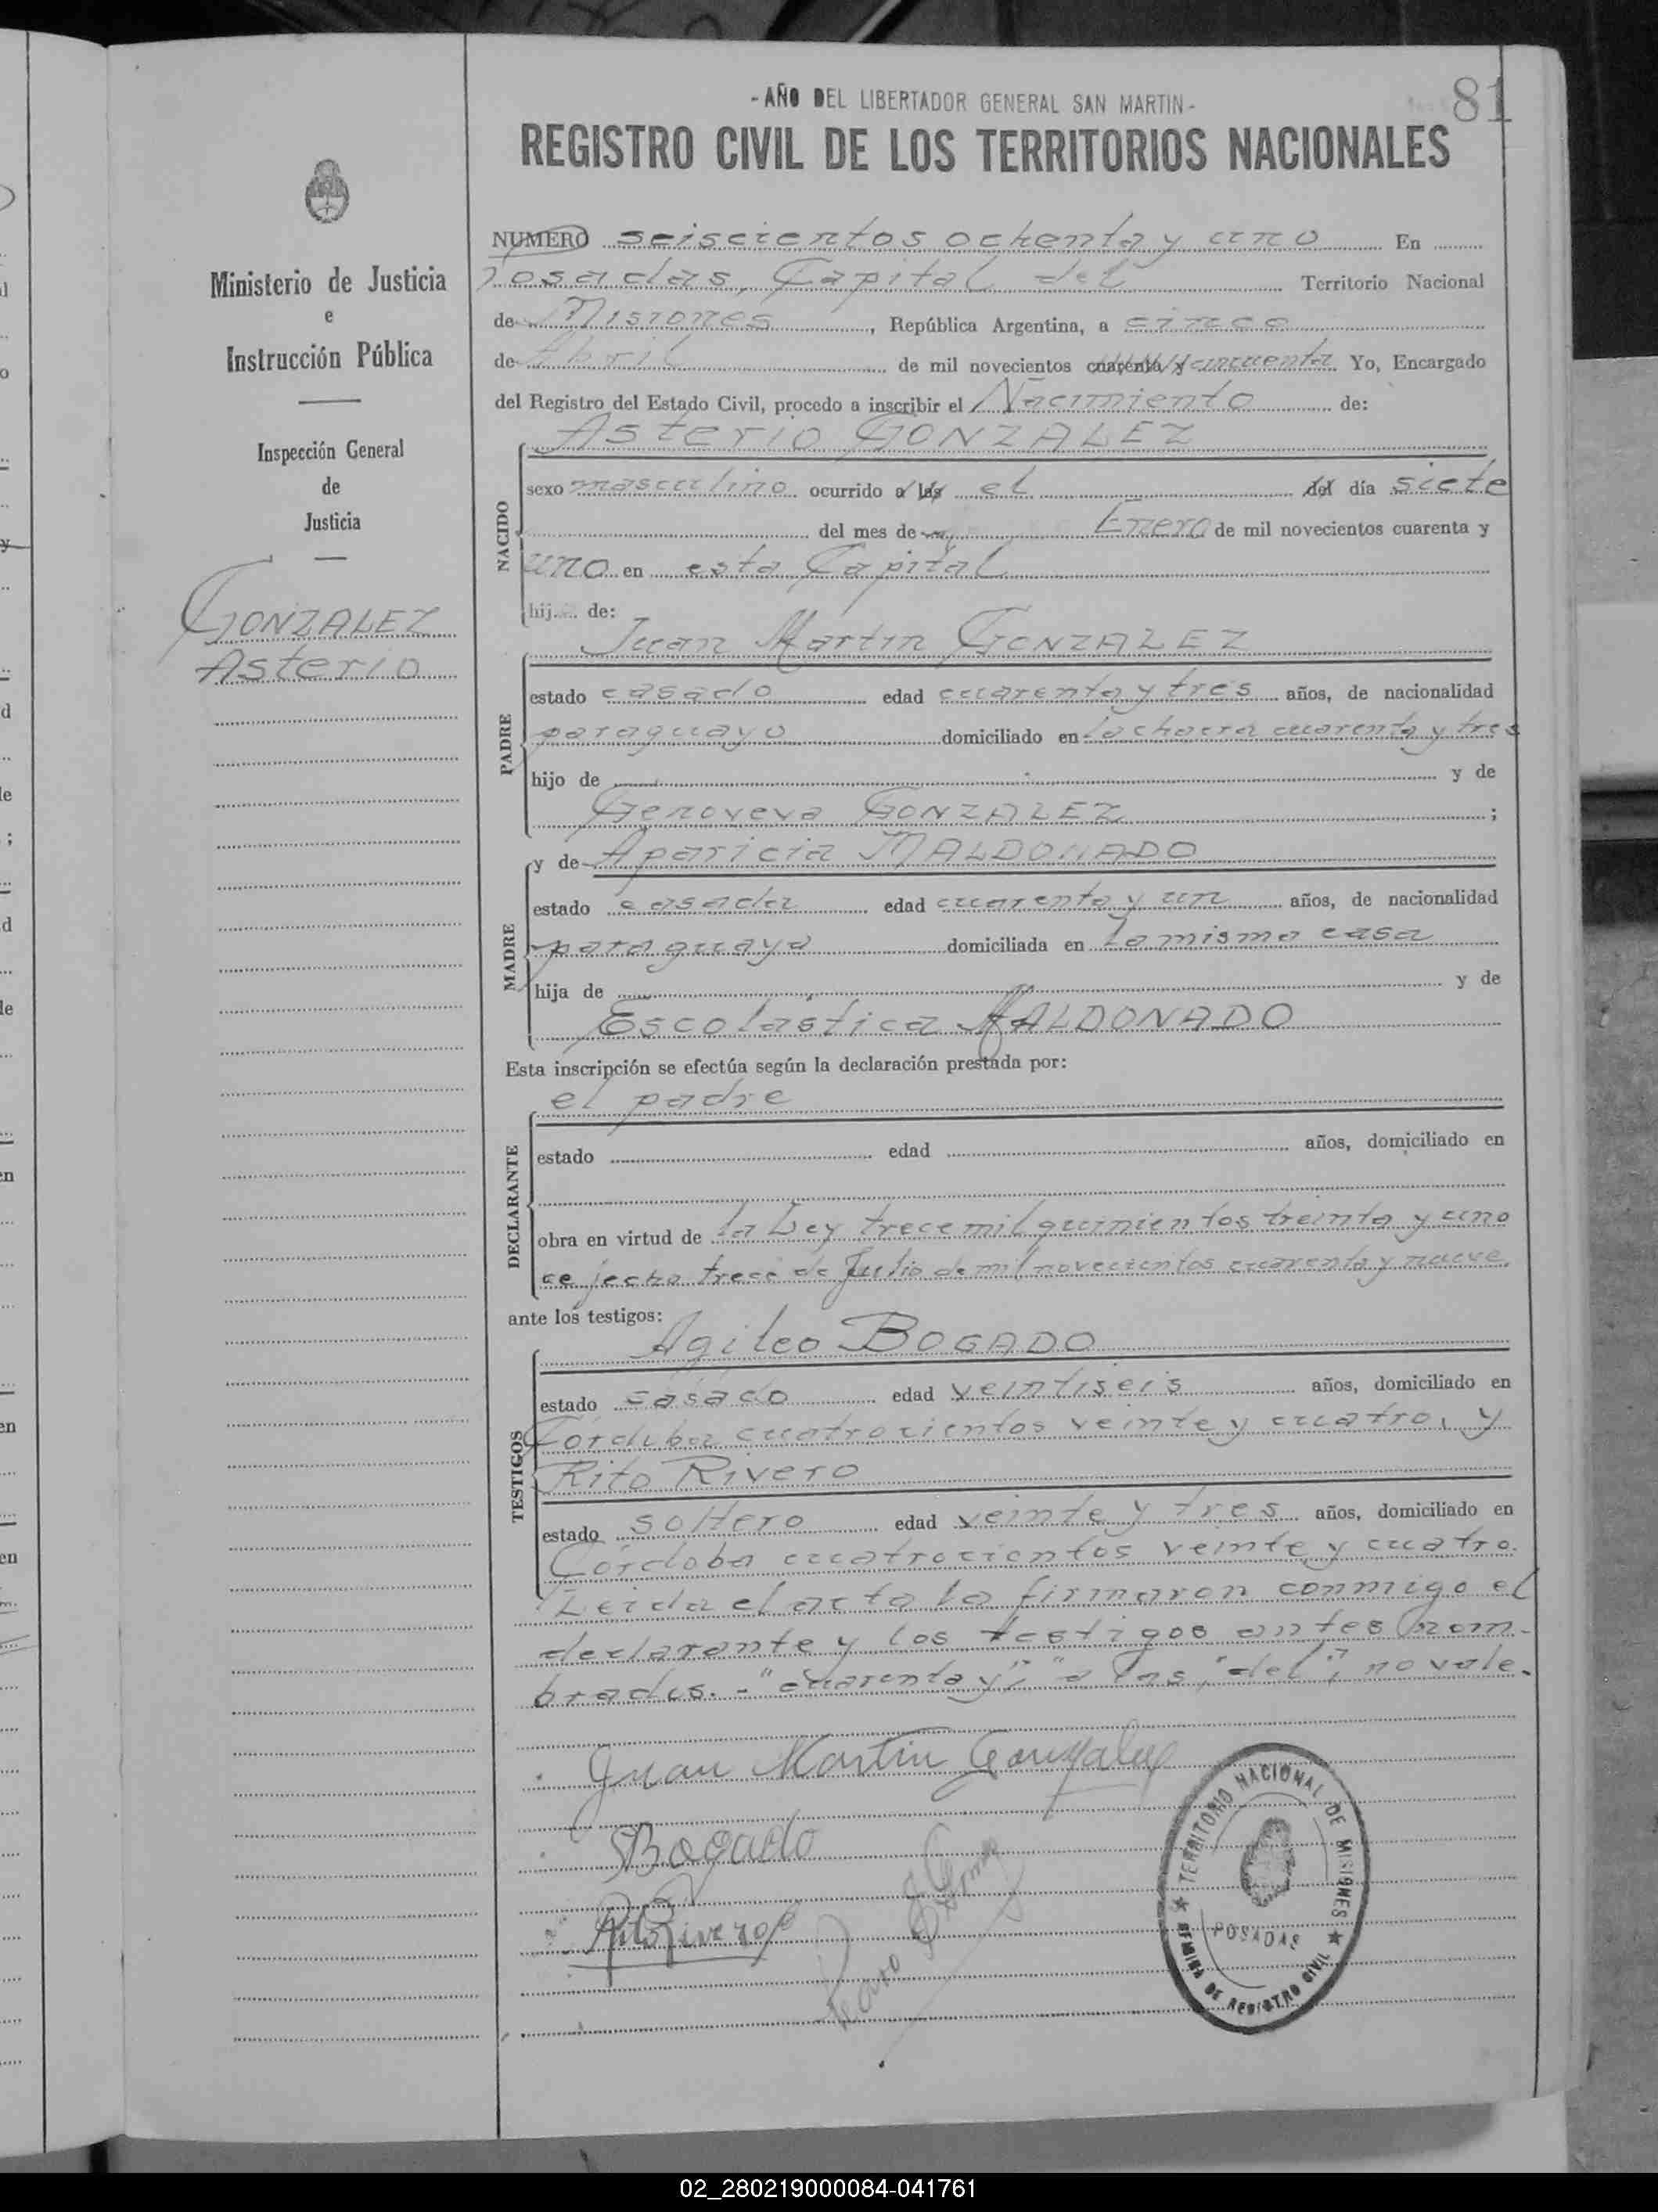 - AÑO DEL LIBERTADOR GENERAL SAN MARTIN -
81
REGISTRO CIVIL DE LOS TERRITORIOS NACIONALES
Ministerio de Justicia
e
Instrucción Pública
Inspección General
de
Justicia
GONZALEZ
Asterio
NUMERO seiscientos ochenta y uno En
Posadas, Capital del Territorio Nacional
de Misiones, República Argentina, a cinco
de Abril de mil novecientos cuarenta y cincuenta Yo, Encargado
del Registro del Estado Civil, procedo a inscribir el Nacimiento de:
Asterio GONZALEZ
NACIDO
sexo masculino ocurrido a las el del día siete
del mes de Enero de mil novecientos cuarenta y
uno en esta Capital
hij... de:
Juan Martin GONZALEZ
PADRE
estado casado edad cuarenta y tres años, de nacionalidad
paraguayo domiciliado en la chacra cuarenta y tres
hijo de y de
Genoveva GONZALEZ ;
y de Aparicia MALDONADO
MADRE
estado casada edad cuarenta y un años, de nacionalidad
paraguaya domiciliada en la misma casa
hija de y de
Escolástica MALDONADO
Esta inscripción se efectúa según la declaración prestada por:
el padre
DECLARANTE
estado edad años, domiciliado en
obra en virtud de la Ley trece mil quinientos treinta y uno
de fecha trece de Julio de mil novecientos cuarenta y nueve.
ante los testigos:
Agileo BOGADO
TESTIGOS
estado casado edad veintiseis años, domiciliado en
Córdoba cuatrocientos veinte y cuatro, y
Rito Rivero
estado soltero edad veinte y tres años, domiciliado en
Córdoba cuatrocientos veinte y cuatro.
Leida el acta la firmaron conmigo el
declarante y los testigos antes nom-
brados. - "cuarenta y", "a las", "del", no vale.
Juan Martin Gonzalez
Bogado
Rito Rivero
TERRITORIO NACIONAL DE MISIONES
POSADAS
DE REGISTRO CIVIL
02_280219000084-041761